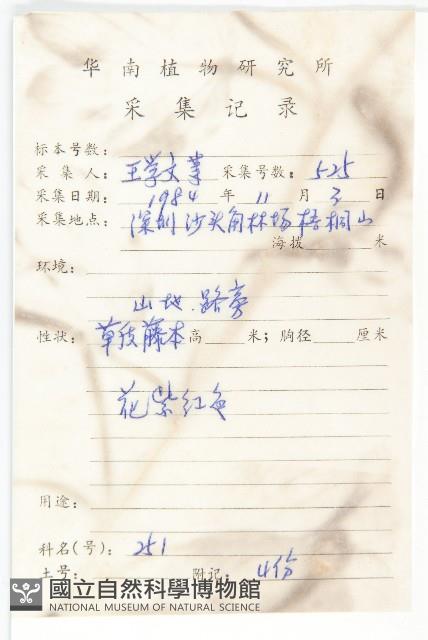 华南植物研究所
采集记录
标本号数:
采集人: 王学文等 采集号数: 525
采集日期: 1984 年 11 月 3 日
采集地点: 深圳沙头角林场梧桐山
海拔 米
环境:
山地.路旁
性状: 草质藤本 高 米; 胸径 厘米
花紫红色
用途:
科名(号): 251
土号: 附记: 4份
國立自然科學博物館
NATIONAL MUSEUM OF NATURAL SCIENCE